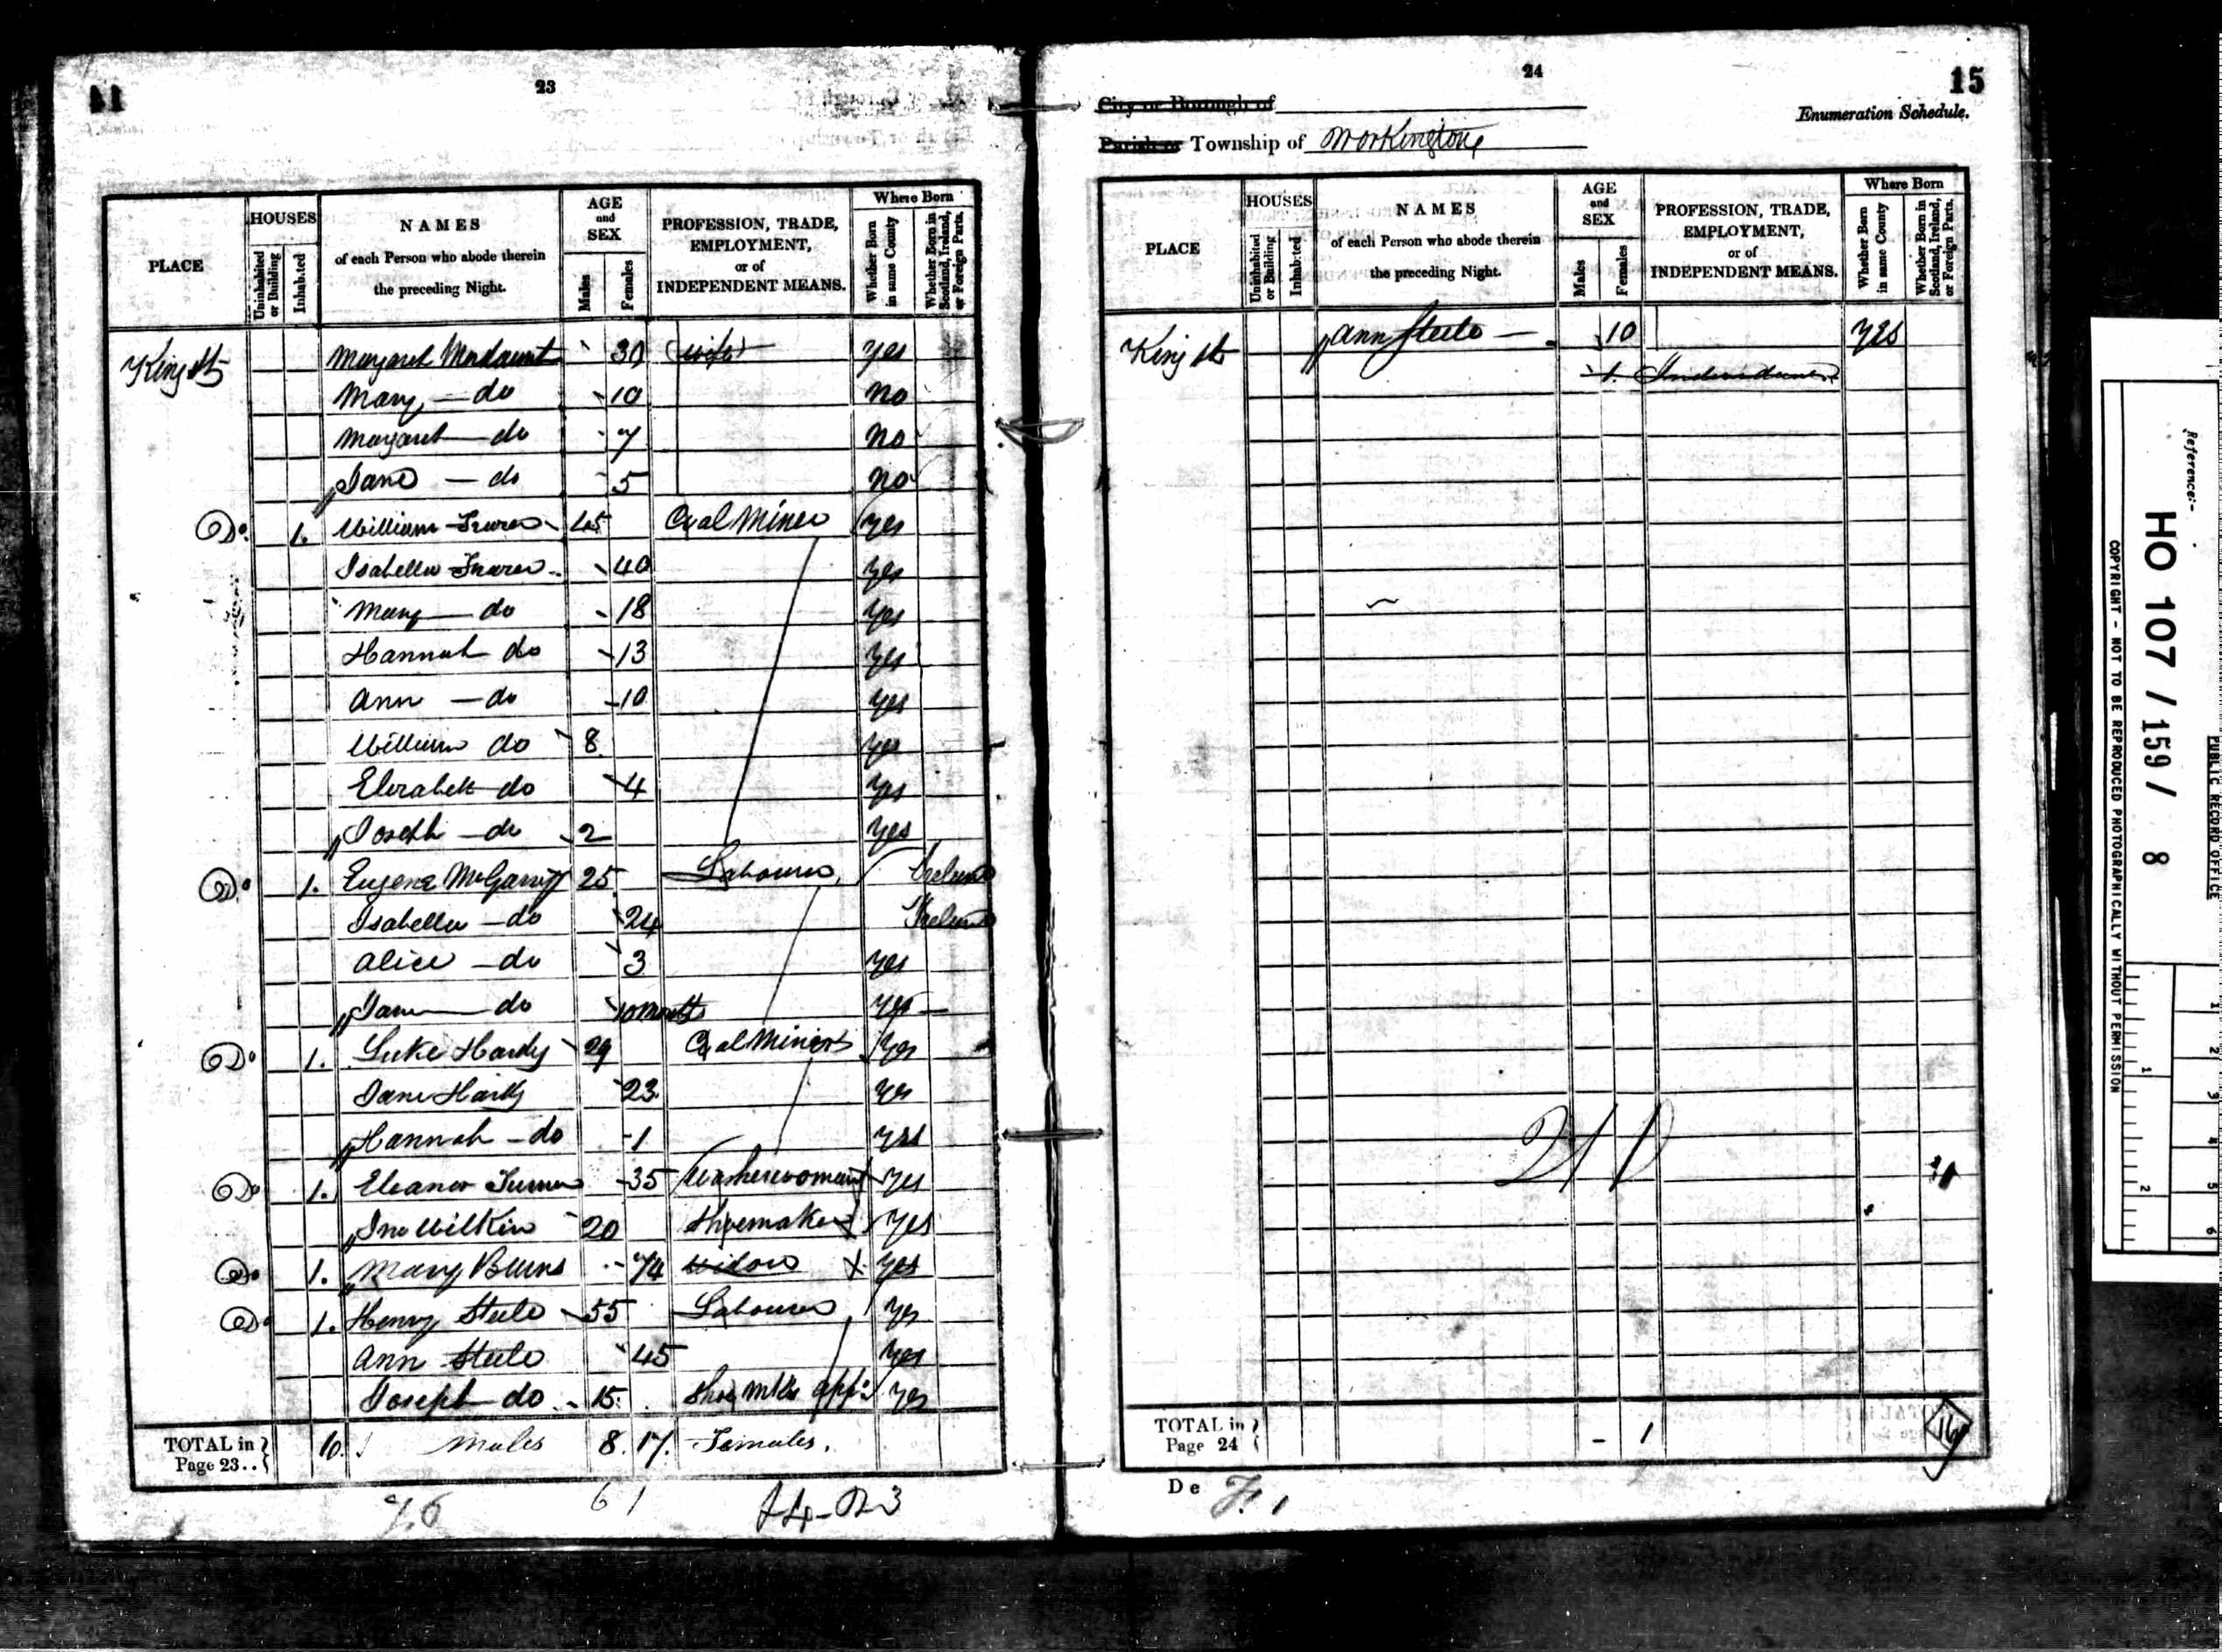 23
HOUSES
NAMES
AGE
and
SEX
PROFESSION, TRADE,
EMPLOYMENT,
or of
INDEPENDENT MEANS.
Where Born
PLACE
Uninhabited
or Building
Inhabited
of each Person who abode therein
the preceding Night.
Males
Females
Whether Born
in same County
Whether Born in
Scotland, Ireland,
or Foreign Parts.
King St Margaret 30 (wife) yes
Mary do 10 no
Margaret do 7 no
Jane do 5 no
Do 1. William 45 Coal Miner yes
Isabella 40 yes
Mary do 18 yes
Hannah do 13 yes
Ann do 10 yes
William do 8 yes
Elizabeth do 4 yes
Joseph do 2 yes
Do 1. Eugene 25 Labourer Ireland
Isabella do 24 Ireland
Alice do 3 yes
Jane do 10 months yes
Do 1. Luke Hardy 29 Coal Miner yes
Jane Hardy 23 yes
Hannah do 1 yes
Do 1. Eleanor 35 Washerwoman yes
Jno Wilkin 20 Shoemaker yes
Do 1. Mary Burns 74 widow yes
Do 1. Henry Steele 55 Labourer yes
Ann Steele 45 yes
Joseph do 15 Shoe mkr app: yes
TOTAL in
Page 23..
Males 8. 17. Females.
24
15
City or Borough of
Enumeration Schedule.
Parish or Township of Workington
HOUSES
NAMES
AGE
and
SEX
PROFESSION, TRADE,
EMPLOYMENT,
or of
INDEPENDENT MEANS.
Where Born
PLACE
Uninhabited
or Building
Inhabited
of each Person who abode therein
the preceding Night.
Males
Females
Whether Born
in same County
Whether Born in
Scotland, Ireland,
or Foreign Parts.
King St Ann Steele 10 yes
TOTAL in
Page 24
- 1
16
Reference:-
HO 107 / 159 / 8
PUBLIC RECORD OFFICE
COPYRIGHT - NOT TO BE REPRODUCED PHOTOGRAPHICALLY WITHOUT PERMISSION
1
2
1
2
3
4
5
6